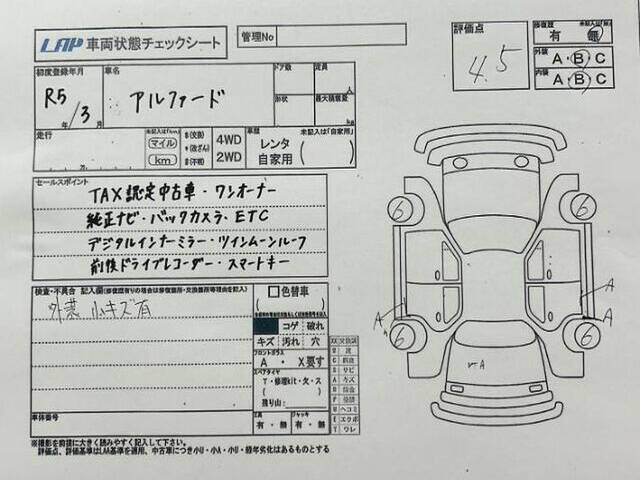 LAP 車両状態チェックシート
管理No
評価点
4.5
修復歴 未記入は「無」
有 無
外装 A・B・C
内装 A・B・C
初度登録年月
R5年/3月
車名
アルファード
ドア数
定員
人
形状
最大積載量
kg
走行
未記入は「km」
マイル
km
$(交換)
*(改ざん)
#(不明)
4WD
2WD
車歴 未記入は「自家用」
レンタ
自家用 ( )
セールスポイント
TAX認定中古車・ワンオーナー
純正ナビ・バックカメラ・ETC
デジタルインナーミラー・ツインムーンルーフ
前後ドライブレコーダー・スマートキー
検査・不具合 記入欄(修復歴有りの場合は修復箇所・交換箇所等理由を記入)
外装 小キズ有
色替車
コゲ 破れ
キズ 汚れ 穴
フロントガラス
A ・ X要す
スペアタイヤ
T・修理kit・欠・ス
( )
残り山:
工具
有・無
ジャッキ
有・無
車体番号
XX 交換済
A キズ
U ヘコミ
E エクボ
6
6
6
6
A
A
A
A
※撮影を前提に大きく読みやすく記入して下さい。